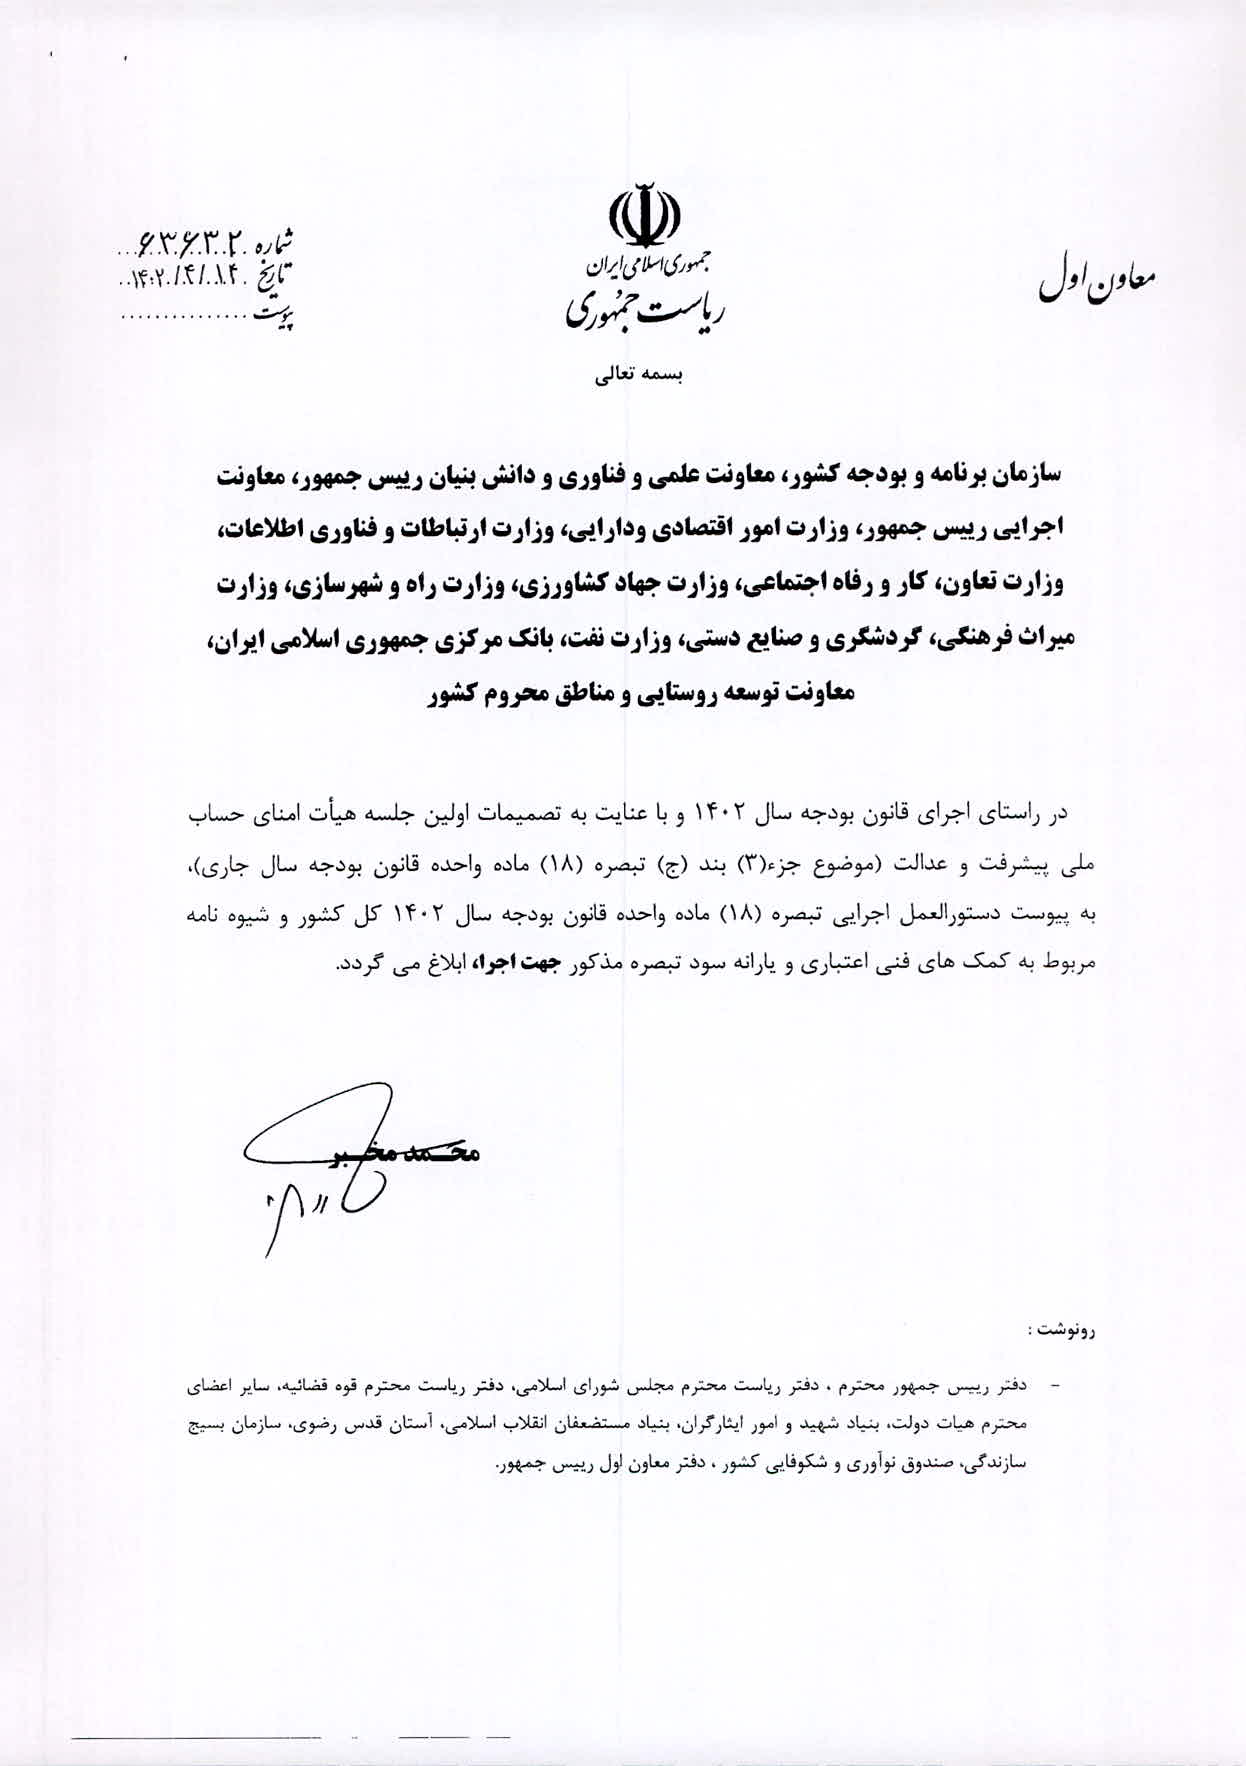 جمهوری اسلامی ایران
ریاست جمهوری
معاون اول
شماره ۶۳۶۳۲
تاریخ ۱۴۰۲/۴/۱۴
پیوست
بسمه تعالی
سازمان برنامه و بودجه کشور، معاونت علمی و فناوری و دانش بنیان رییس جمهور، معاونت
اجرایی رییس جمهور، وزارت امور اقتصادی ودارایی، وزارت ارتباطات و فناوری اطلاعات،
وزارت تعاون، کار و رفاه اجتماعی، وزارت جهاد کشاورزی، وزارت راه و شهرسازی، وزارت
میراث فرهنگی، گردشگری و صنایع دستی، وزارت نفت، بانک مرکزی جمهوری اسلامی ایران،
معاونت توسعه روستایی و مناطق محروم کشور
در راستای اجرای قانون بودجه سال ۱۴۰۲ و با عنایت به تصمیمات اولین جلسه هیأت امنای حساب
ملی پیشرفت و عدالت (موضوع جزء(۳) بند (ج) تبصره (۱۸) ماده واحده قانون بودجه سال جاری)،
به پیوست دستورالعمل اجرایی تبصره (۱۸) ماده واحده قانون بودجه سال ۱۴۰۲ کل کشور و شیوه نامه
مربوط به کمک های فنی اعتباری و یارانه سود تبصره مذکور جهت اجرا، ابلاغ می گردد.
محمد مخبر
رونوشت :
- دفتر رییس جمهور محترم ، دفتر ریاست محترم مجلس شورای اسلامی، دفتر ریاست محترم قوه قضائیه، سایر اعضای
محترم هیات دولت، بنیاد شهید و امور ایثارگران، بنیاد مستضعفان انقلاب اسلامی، آستان قدس رضوی، سازمان بسیج
سازندگی، صندوق نوآوری و شکوفایی کشور ، دفتر معاون اول رییس جمهور.